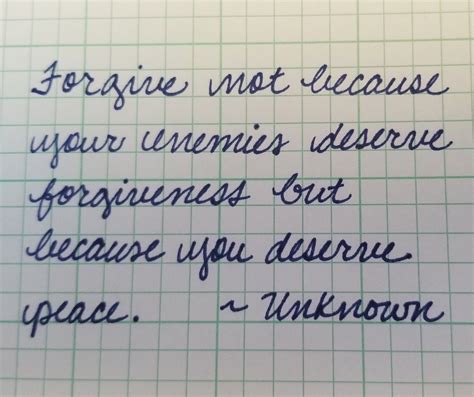 Forgive not because
your enemies deserve
forgiveness but
because you deserve
peace. ~ Unknown